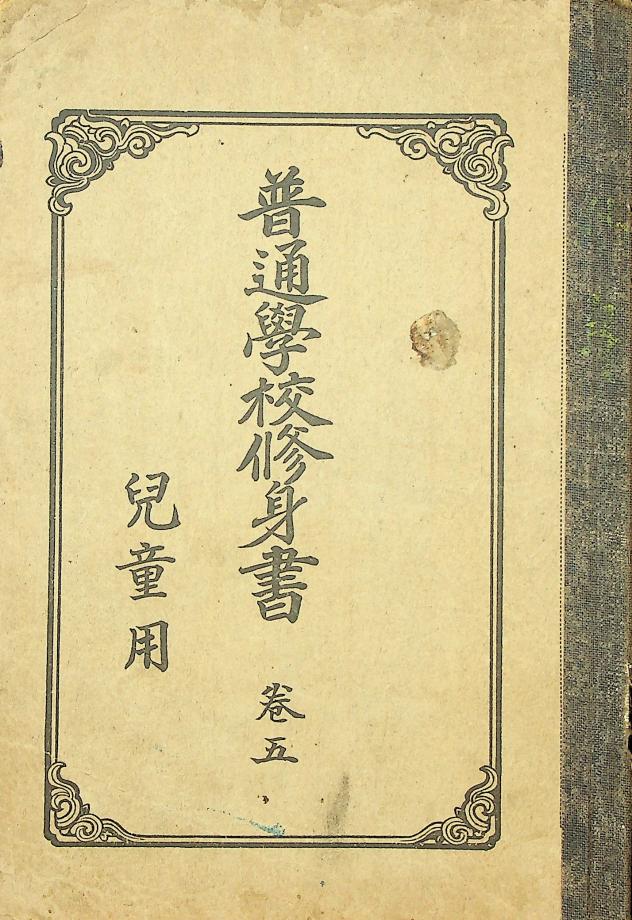 普通學校修身書 卷五
兒童用